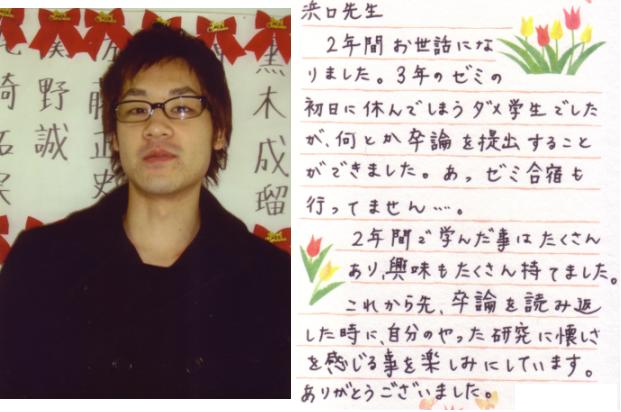 黒木成瑠
野誠
藤正史
崎拓実
浜口先生
2年間お世話にな
りました。3年のゼミの
初日に休んでしまうダメ学生でした
が、何とか卒論を提出すること
ができました。あっゼミ合宿も
行ってません…。
2年間で学んだ事はたくさん
あり、興味もたくさん持てました。
これから先、卒論を読み返
した時に、自分のやった研究に懐しさ
を感じる事を楽しみにしています。
ありがとうございました。